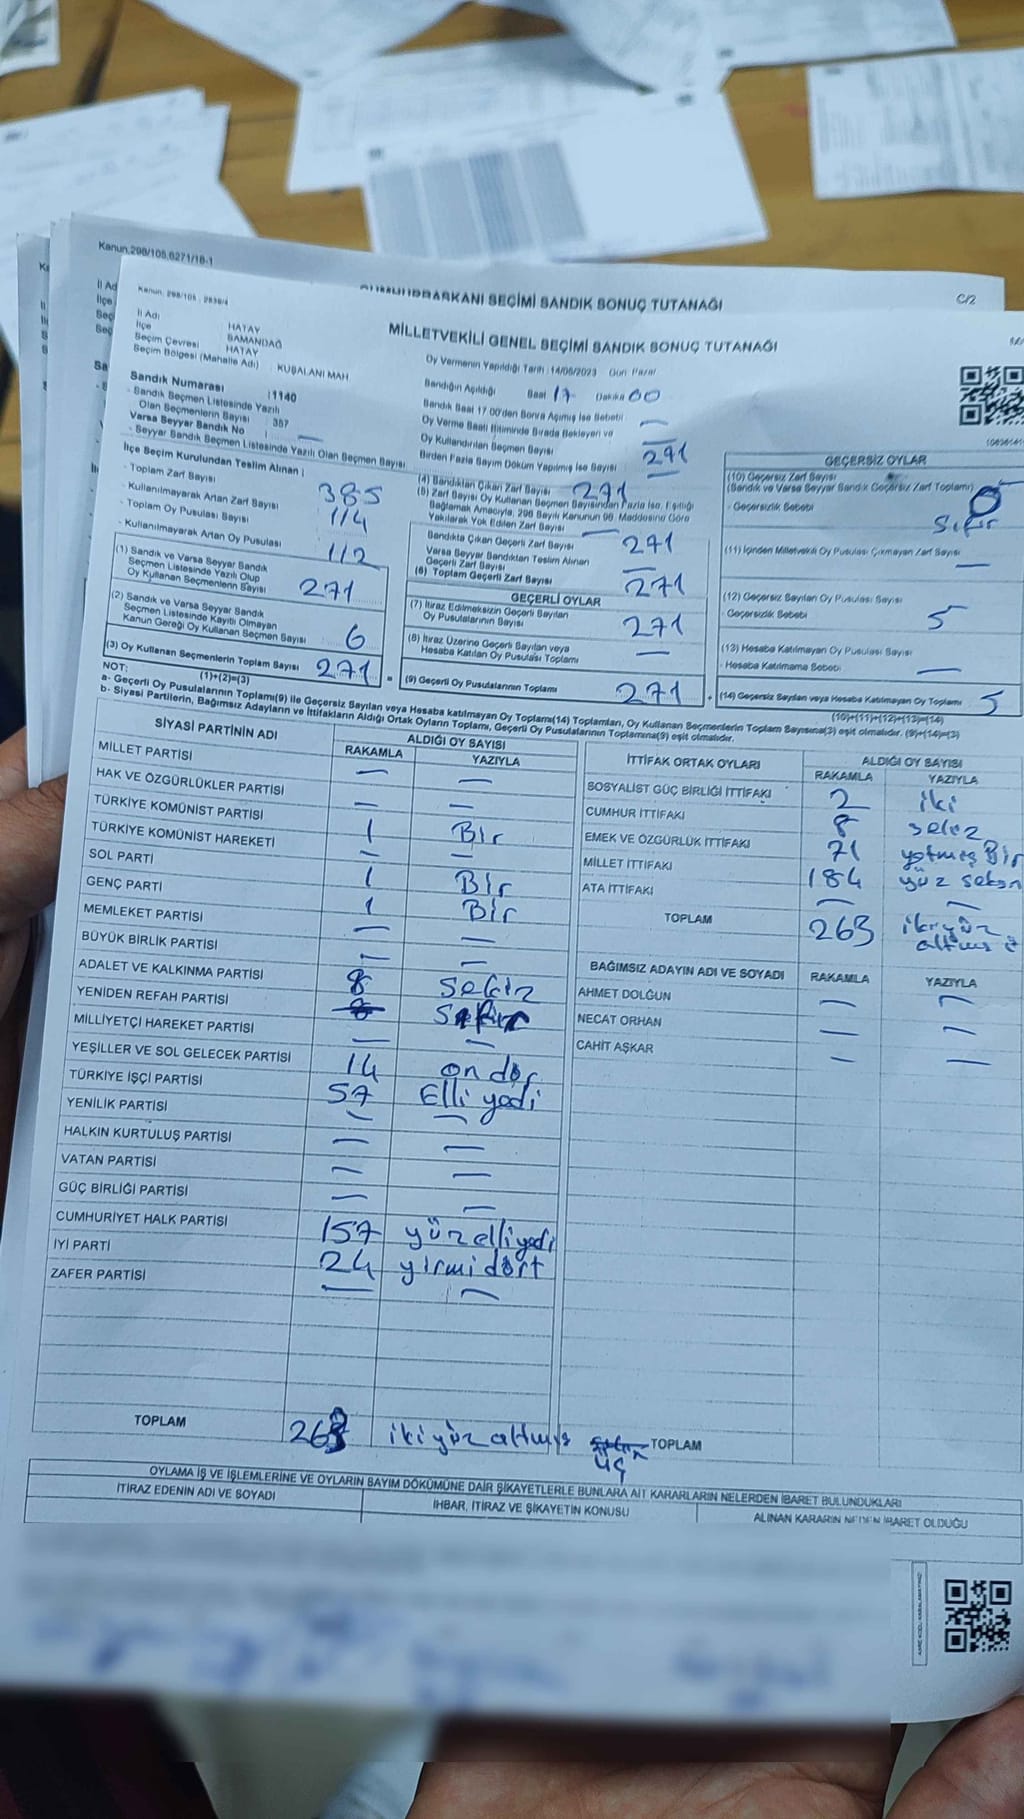 Kanun.298/105,6271/18-1
CUMHURBAŞKANI SEÇİMİ SANDIK SONUÇ TUTANAĞI
C/2
Kanun. 298/105 , 2839/4
MİLLETVEKİLİ GENEL SEÇİMİ SANDIK SONUÇ TUTANAĞI
İl Adı HATAY
İlçe SAMANDAĞ
Seçim Çevresi HATAY
Seçim Bölgesi (Mahalle Adı) : KUŞALANI MAH
Sandık Numarası :1140
- Sandık Seçmen Listesinde Yazılı
Olan Seçmenlerin Sayısı : 357
Varsa Seyyar Sandık No : —
- Seyyar Sandık Seçmen Listesinde Yazılı Olan Seçmen Sayısı
Oy Vermenin Yapıldığı Tarih :14/05/2023 Gün: Pazar
Sandığın Açıldığı Saat 17 Dakika 00
Sandık Saat 17.00'den Sonra Açılmış İse Sebebi —
Oy Verme Saati Bitiminde Sırada Bekleyen ve
Oy Kullandırılan Seçmen Sayısı —
Birden Fazla Sayım Döküm Yapılmış İse Sayısı
271
—
İlçe Seçim Kurulundan Teslim Alınan ;
- Toplam Zarf Sayısı 385
- Kullanılmayarak Artan Zarf Sayısı 114
- Toplam Oy Pusulası Sayısı
- Kullanılmayarak Artan Oy Pusulası 112
(1) Sandık ve Varsa Seyyar Sandık
Seçmen Listesinde Yazılı Olup
Oy Kullanan Seçmenlerin Sayısı 271
(2) Sandık ve Varsa Seyyar Sandık
Seçmen Listesinde Kayıtlı Olmayan
Kanun Gereği Oy Kullanan Seçmen Sayısı 6
(3) Oy Kullanan Seçmenlerin Toplam Sayısı 271
(1)+(2)=(3)
(4) Sandıktan Çıkan Zarf Sayısı 271
(5) Zarf Sayısı Oy Kullanan Seçmen Sayısından Fazla İse, Eşitliği
Sağlamak Amacıyla, 298 Sayılı Kanunun 98. Maddesine Göre
Yakılarak Yok Edilen Zarf Sayısı —
Sandıkta Çıkan Geçerli Zarf Sayısı 271
Varsa Seyyar Sandıktan Teslim Alınan
Geçerli Zarf Sayısı —
(6) Toplam Geçerli Zarf Sayısı 271
GEÇERLİ OYLAR
(7) İtiraz Edilmeksizin Geçerli Sayılan
Oy Pusulalarının Sayısı 271
(8) İtiraz Üzerine Geçerli Sayılan veya
Hesaba Katılan Oy Pusulası Toplamı —
= (9) Geçerli Oy Pusulalarının Toplamı 271
GEÇERSİZ OYLAR
(10) Geçersiz Zarf Sayısı
(Sandık ve Varsa Seyyar Sandık Geçersiz Zarf Toplamı) 0
- Geçersizlik Sebebi Sıfır
(11) İçinden Milletvekili Oy Pusulası Çıkmayan Zarf Sayısı —
(12) Geçersiz Sayılan Oy Pusulası Sayısı 5
- Geçersizlik Sebebi
(13) Hesaba Katılmayan Oy Pusulası Sayısı
- Hesaba Katılmama Sebebi —
+ (14) Geçersiz Sayılan veya Hesaba Katılmayan Oy Toplamı 5
(10)+(11)+(12)+(13)=(14)
NOT:
a- Geçerli Oy Pusulalarının Toplamı(9) ile Geçersiz Sayılan veya Hesaba katılmayan Oy Toplamı(14) Toplamları, Oy Kullanan Seçmenlerin Toplam Sayısına(3) eşit olmalıdır. (9)+(14)=(3)
b- Siyasi Partilerin, Bağımsız Adayların ve İttifakların Aldığı Ortak Oyların Toplamı, Geçerli Oy Pusulalarının Toplamına(9) eşit olmalıdır.
SİYASİ PARTİNİN ADI ALDIĞI OY SAYISI
RAKAMLA YAZIYLA
MİLLET PARTİSİ — —
HAK VE ÖZGÜRLÜKLER PARTİSİ — —
TÜRKİYE KOMÜNİST PARTİSİ 1 Bir
TÜRKİYE KOMÜNİST HAREKETİ — —
SOL PARTİ 1 Bir
GENÇ PARTİ 1 Bir
MEMLEKET PARTİSİ — —
BÜYÜK BİRLİK PARTİSİ — —
ADALET VE KALKINMA PARTİSİ 8 sekiz
YENİDEN REFAH PARTİSİ
MİLLİYETÇİ HAREKET PARTİSİ — —
YEŞİLLER VE SOL GELECEK PARTİSİ 14 on dör
TÜRKİYE İŞÇİ PARTİSİ 57 Elli yedi
YENİLİK PARTİSİ — —
HALKIN KURTULUŞ PARTİSİ — —
VATAN PARTİSİ — —
GÜÇ BİRLİĞİ PARTİSİ — —
CUMHURİYET HALK PARTİSİ 157 yüz elli yedi
İYİ PARTİ 24 yirmi dört
ZAFER PARTİSİ — —
TOPLAM 263 iki yüz altmış üç
İTTİFAK ORTAK OYLARI ALDIĞI OY SAYISI
RAKAMLA YAZIYLA
SOSYALİST GÜÇ BİRLİĞİ İTTİFAKI 2 iki
CUMHUR İTTİFAKI 8 sekiz
EMEK VE ÖZGÜRLÜK İTTİFAKI 71 yetmiş Bir
MİLLET İTTİFAKI 184 yüz seksn
ATA İTTİFAKI — —
TOPLAM 263 iki yüz
altmış ü
BAĞIMSIZ ADAYIN ADI VE SOYADI RAKAMLA YAZIYLA
AHMET DOLĞUN — —
NECAT ORHAN — —
CAHİT AŞKAR — —
TOPLAM
OYLAMA İŞ VE İŞLEMLERİNE VE OYLARIN SAYIM DÖKÜMÜNE DAİR ŞİKAYETLERLE BUNLARA AİT KARARLARIN NELERDEN İBARET BULUNDUKLARI
İTİRAZ EDENİN ADI VE SOYADI İHBAR, İTİRAZ VE ŞİKAYETİN KONUSU ALINAN KARARIN NEDEN İBARET OLDUĞU